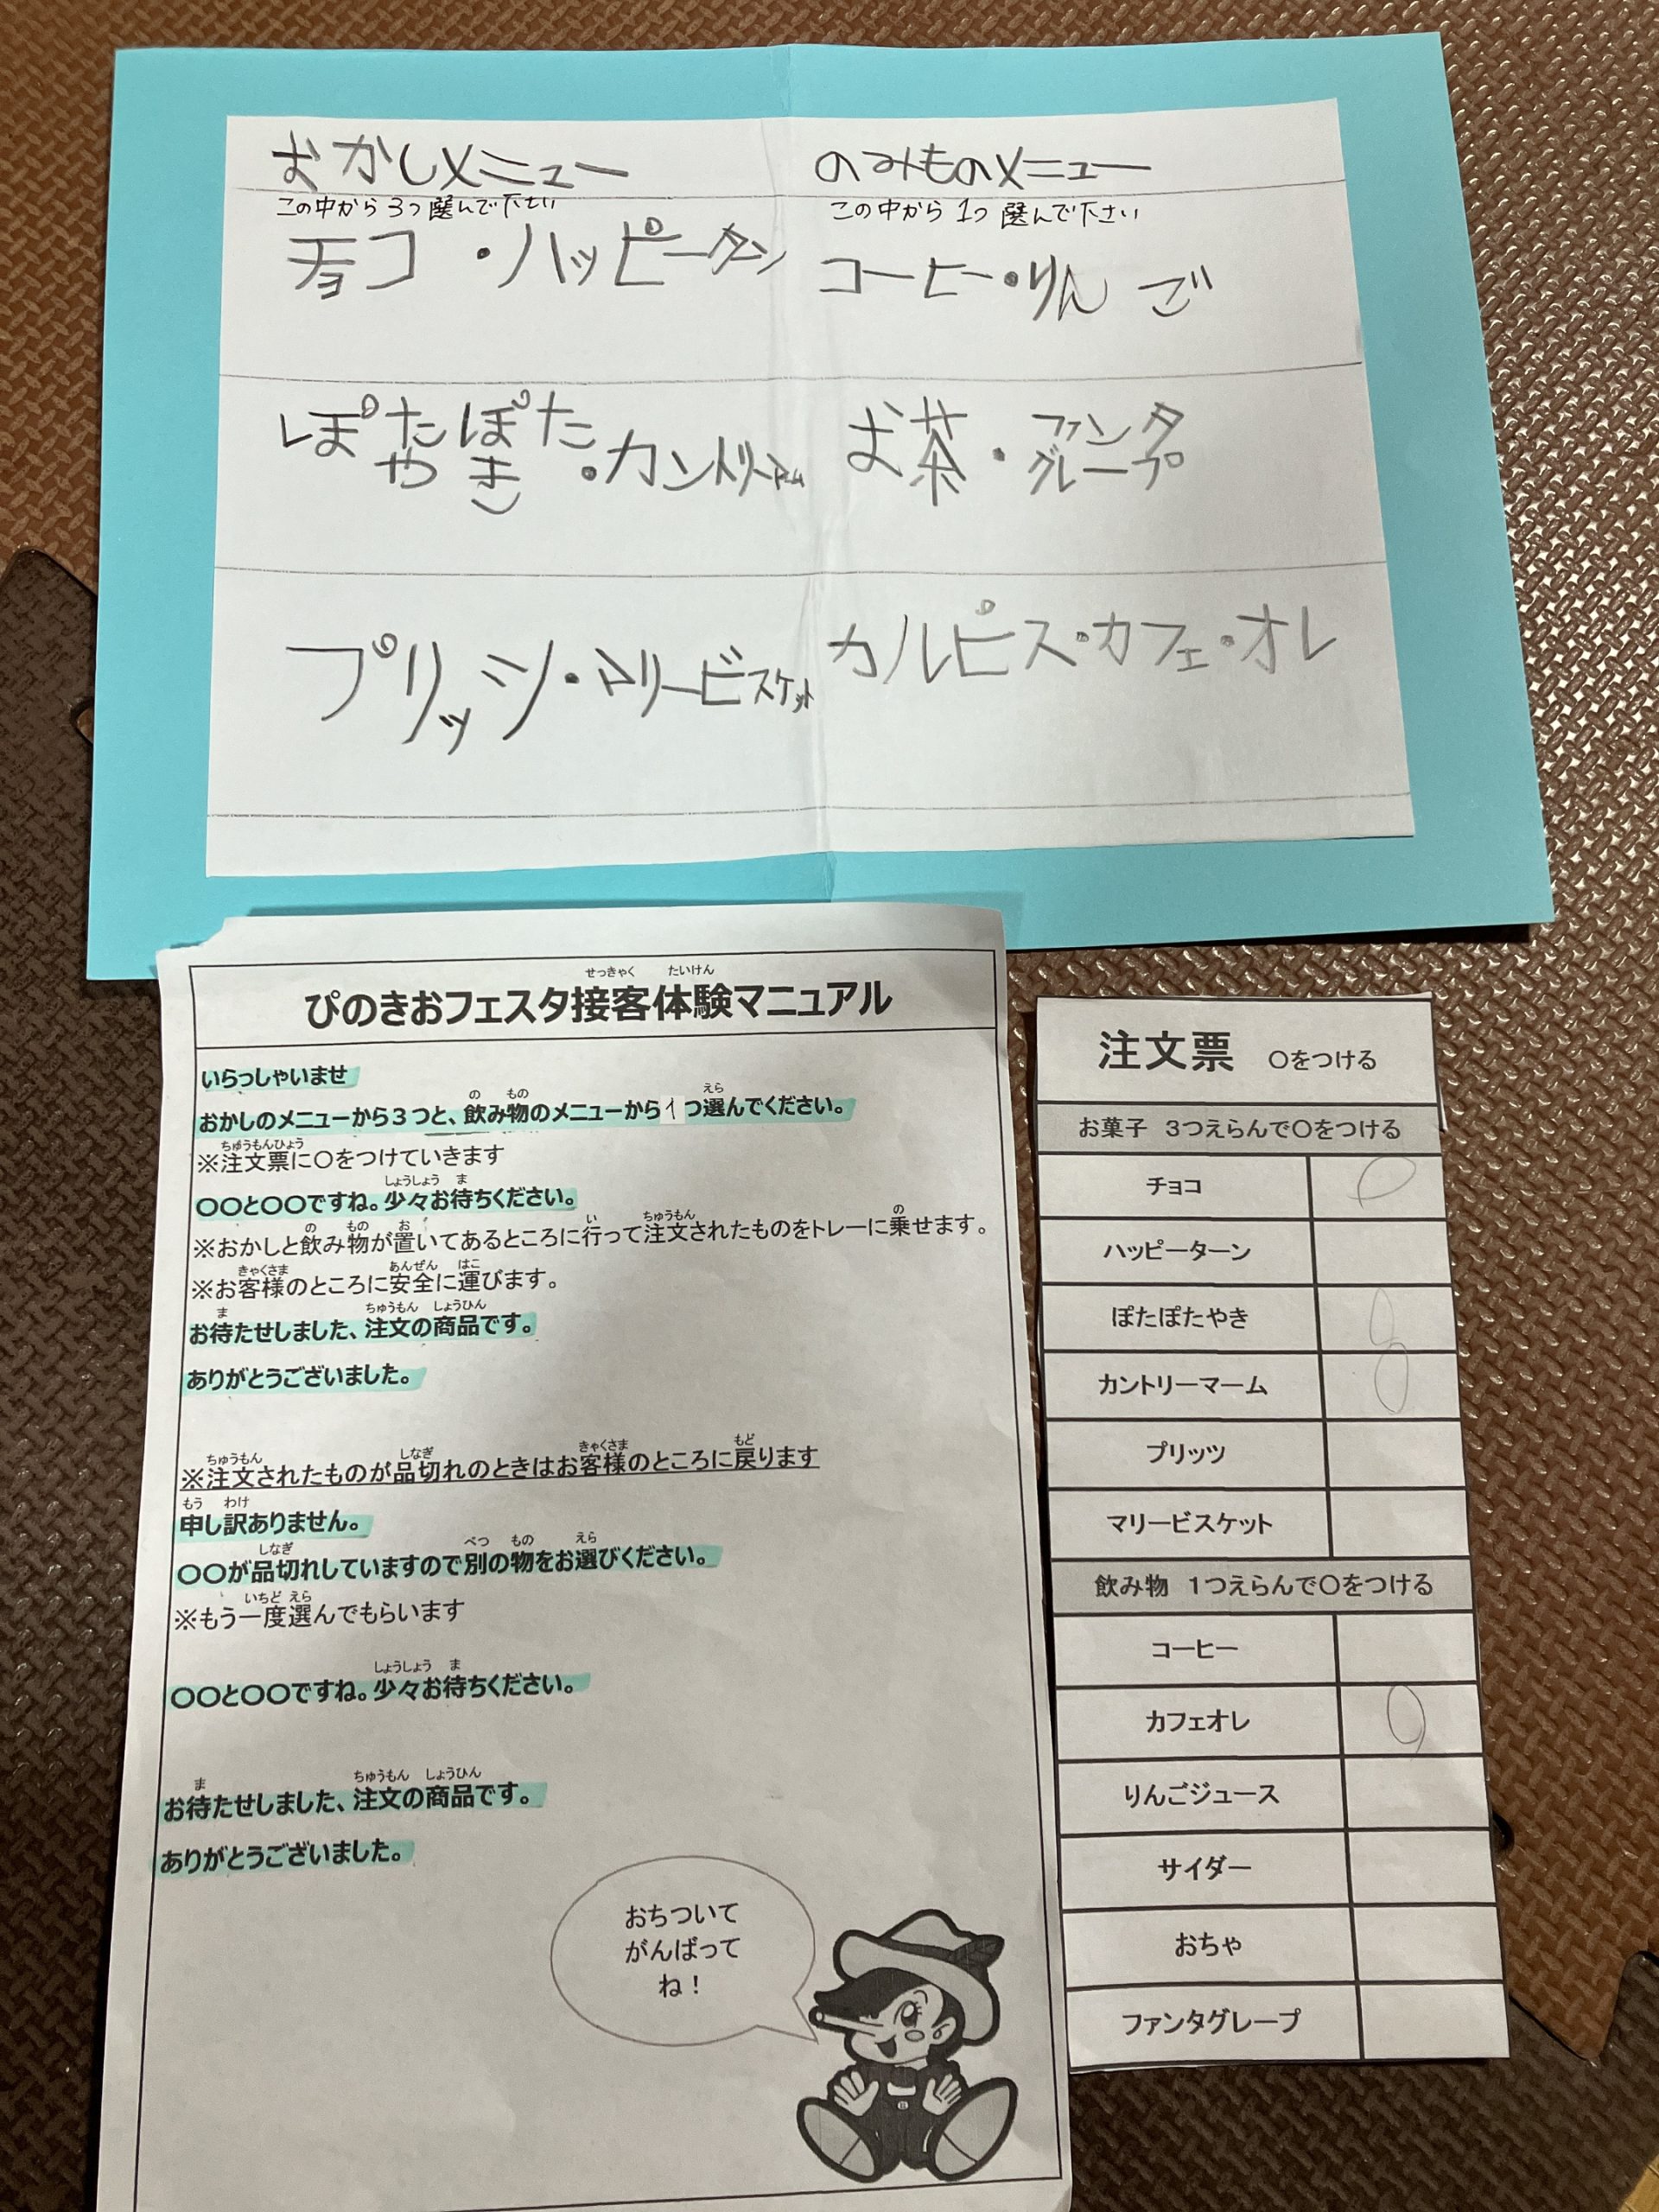 おかしメニュー
この中から3つ選んで下さい
チョコ・ハッピータン
ぽたぽた
やき・カントリーマーム
プリッツ・マリービスケット
のみものメニュー
この中から1つ選んで下さい
コーヒー・りんご
お茶・ファンタ
グレープ
カルピス・カフェ・オレ
せっきゃく たいけん
ぴのきおフェスタ接客体験マニュアル
いらっしゃいませ
の もの えら
おかしのメニューから3つと、飲み物のメニューから1つ選んでください。
ちゅうもんひょう
※注文票に〇をつけていきます
しょうしょう ま
〇〇と〇〇ですね。少々お待ちください。
の もの お い ちゅうもん の
※おかしと飲み物が置いてあるところに行って注文されたものをトレーに乗せます。
きゃくさま あんぜん はこ
※お客様のところに安全に運びます。
ま ちゅうもん しょうひん
お待たせしました、注文の商品です。
ありがとうございました。
ちゅうもん しなぎ きゃくさま もど
※注文されたものが品切れのときはお客様のところに戻ります
もう わけ
申し訳ありません。
しなぎ べつ もの えら
〇〇が品切れしていますので別の物をお選びください。
いちど えら
※もう一度選んでもらいます
しょうしょう ま
〇〇と〇〇ですね。少々お待ちください。
ま ちゅうもん しょうひん
お待たせしました、注文の商品です。
ありがとうございました。
おちついて
がんばって
ね！
注文票 〇をつける
お菓子 3つえらんで〇をつける
チョコ 〇
ハッピーターン
ぽたぽたやき 〇
カントリーマーム 〇
プリッツ
マリービスケット
飲み物 1つえらんで〇をつける
コーヒー
カフェオレ 〇
りんごジュース
サイダー
おちゃ
ファンタグレープ